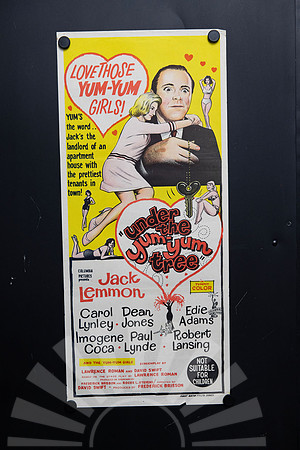 LOVE THOSE
YUM-YUM
GIRLS!
YUM'S
the word..
Jack's the
landlord of an
apartment
house with
the prettiest
tenants in
town!
"under the
yum-yum
tree"
COLUMBIA
PICTURES
presents
Jack
Lemmon
COLOR
Carol Lynley • Dean Jones
Edie Adams
Imogene Coca • Paul Lynde
Robert Lansing
AND THE YUM-YUM GIRLS
SCREENPLAY BY
LAWRENCE ROMAN AND DAVID SWIFT
BASED ON THE STAGE PLAY BY LAWRENCE ROMAN
DIRECTED BY DAVID SWIFT
PRODUCED BY FREDERICK BRISSON
NOT
SUITABLE
FOR
CHILDREN